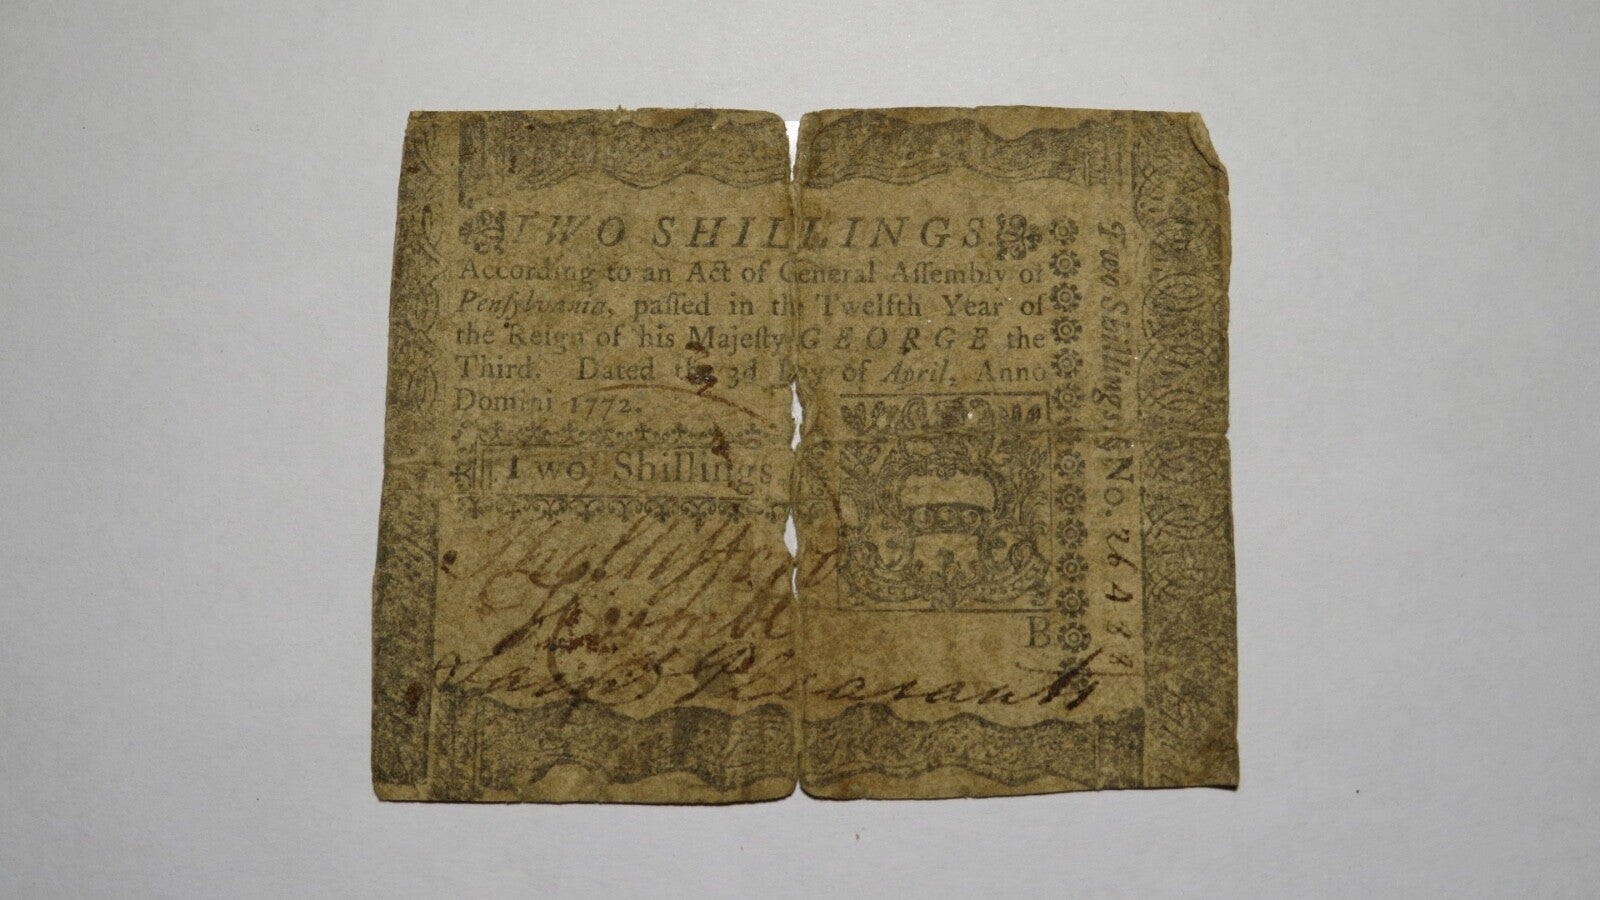 TWO SHILLINGS.
According to an Act of General Aſſembly of
Penſylvania, paſſed in the Twelfth Year of
the Reign of his Majeſty GEORGE the
Third. Dated the 3d Day of April, Anno
Domini 1772.
Two Shillings
B
Pleasants
Two Shillings, No. 26488